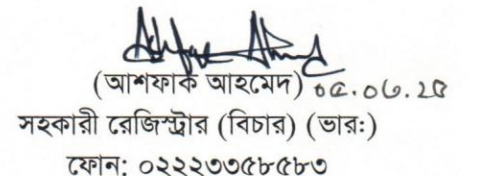 (আশফাক আহমেদ) ০৫.০৬.২৫
সহকারী রেজিস্ট্রার (বিচার) (ভার:)
ফোন: ০২২২৩৩৫৮৫৮৩